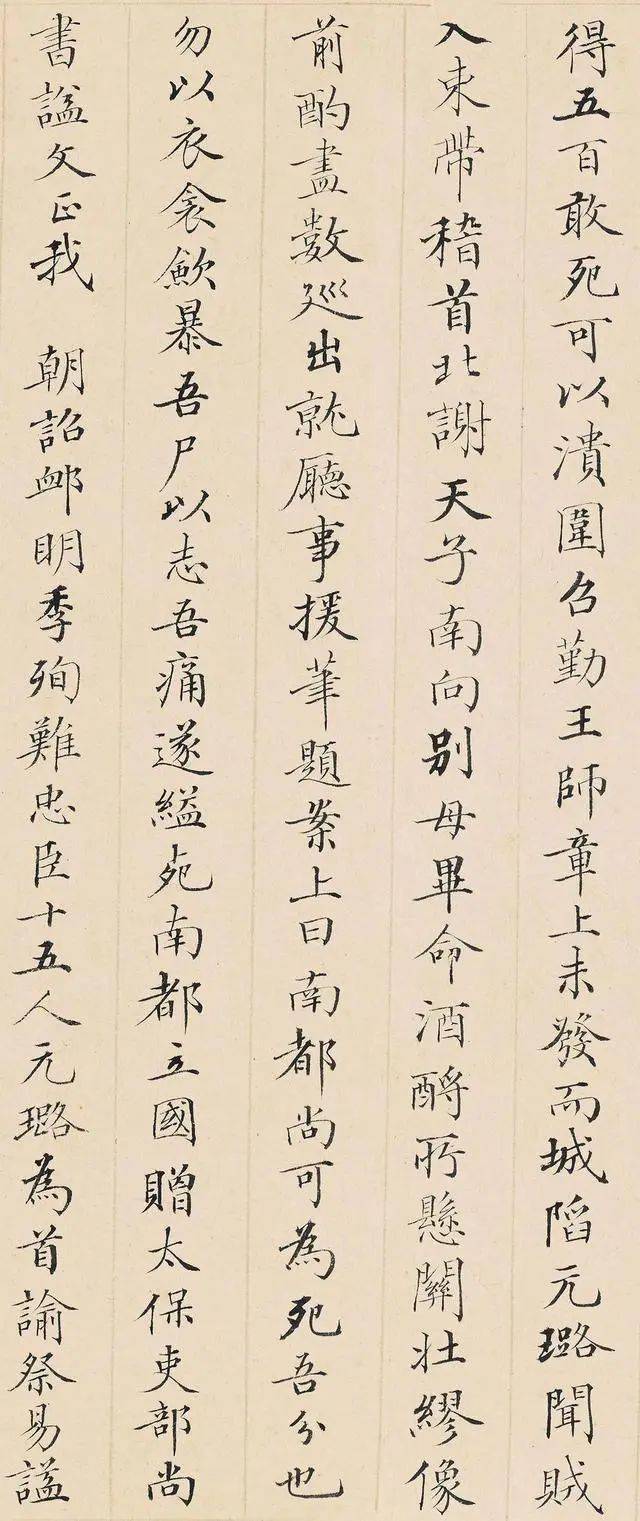 得五百敢死可以潰圍召勤王師章上未發而城陷元璐聞賊
入束帶稽首北謝天子南向別母畢命酒酹所懸關壯繆像
前酌盡數巡出就廳事援筆題案上曰南都尚可為死吾分也
勿以衣衾歛暴吾尸以志吾痛遂縊死南都立國贈太保吏部尚
書謚文正我 朝詔卹明季殉難忠臣十五人元璐為首諭祭易謚